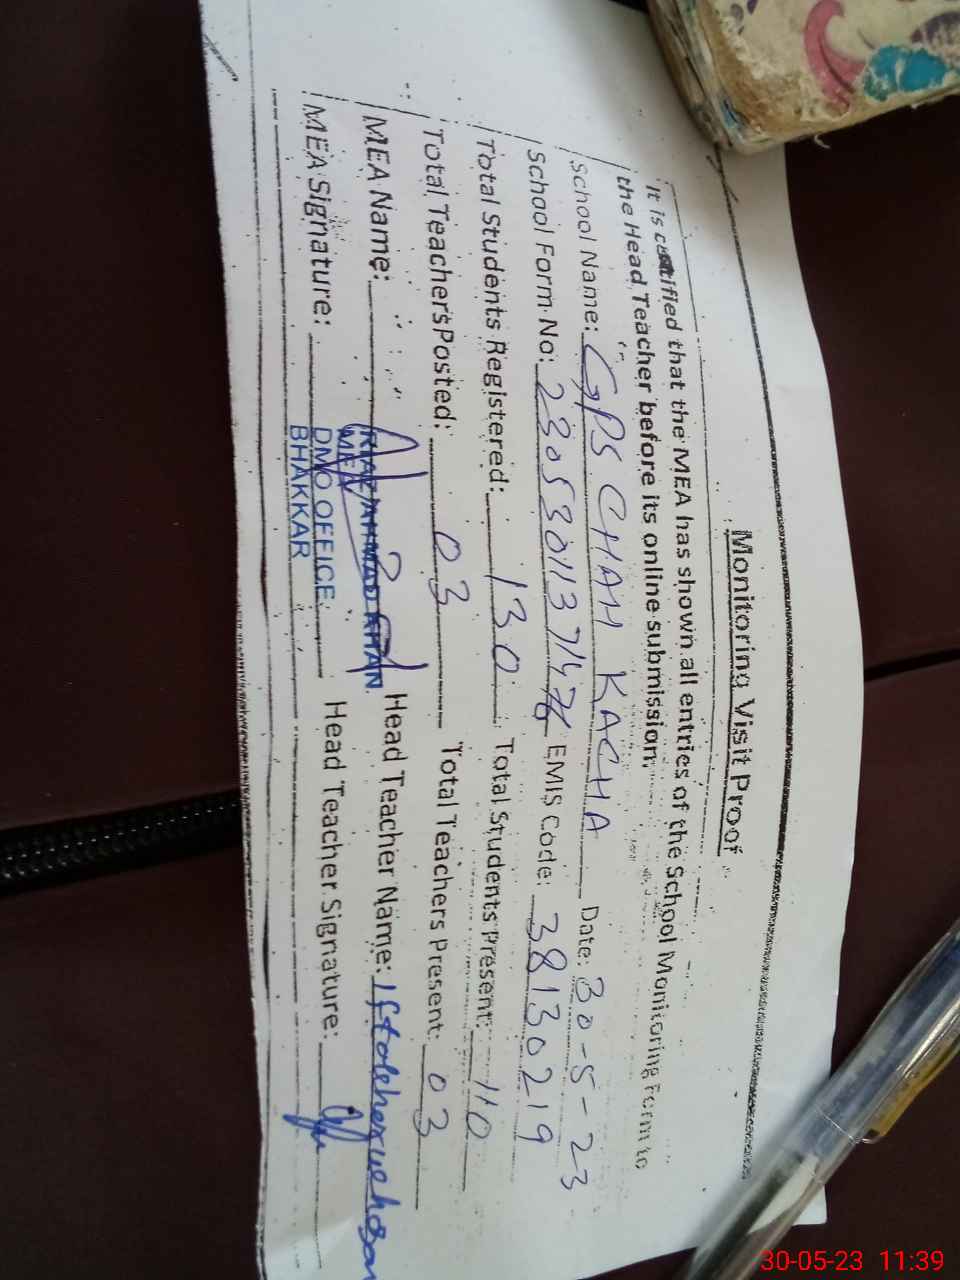 Monitoring Visit Proof
It is certified that the MEA has shown all entries of the School Monitoring Form to
the Head Teacher before its online submission.
School Name: GPS CHAH KACHA Date: 30-5-23
School Form No: EMIS Code: 38130219
Total Students Registered: 130 Total Students Present: 110
Total Teachers Posted: 03 Total Teachers Present: 03
MEA Name: RIAZ AHMAD KHAN Head Teacher Name:
MEA
MEA Signature: DMO OFFICE Head Teacher Signature:
BHAKKAR
30-05-23 11:39